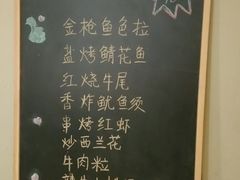 金枪鱼色拉
盐烤鲭花鱼
红烧牛尾
香炸鱿鱼须
串烤红虾
炒西兰花
牛肉粒